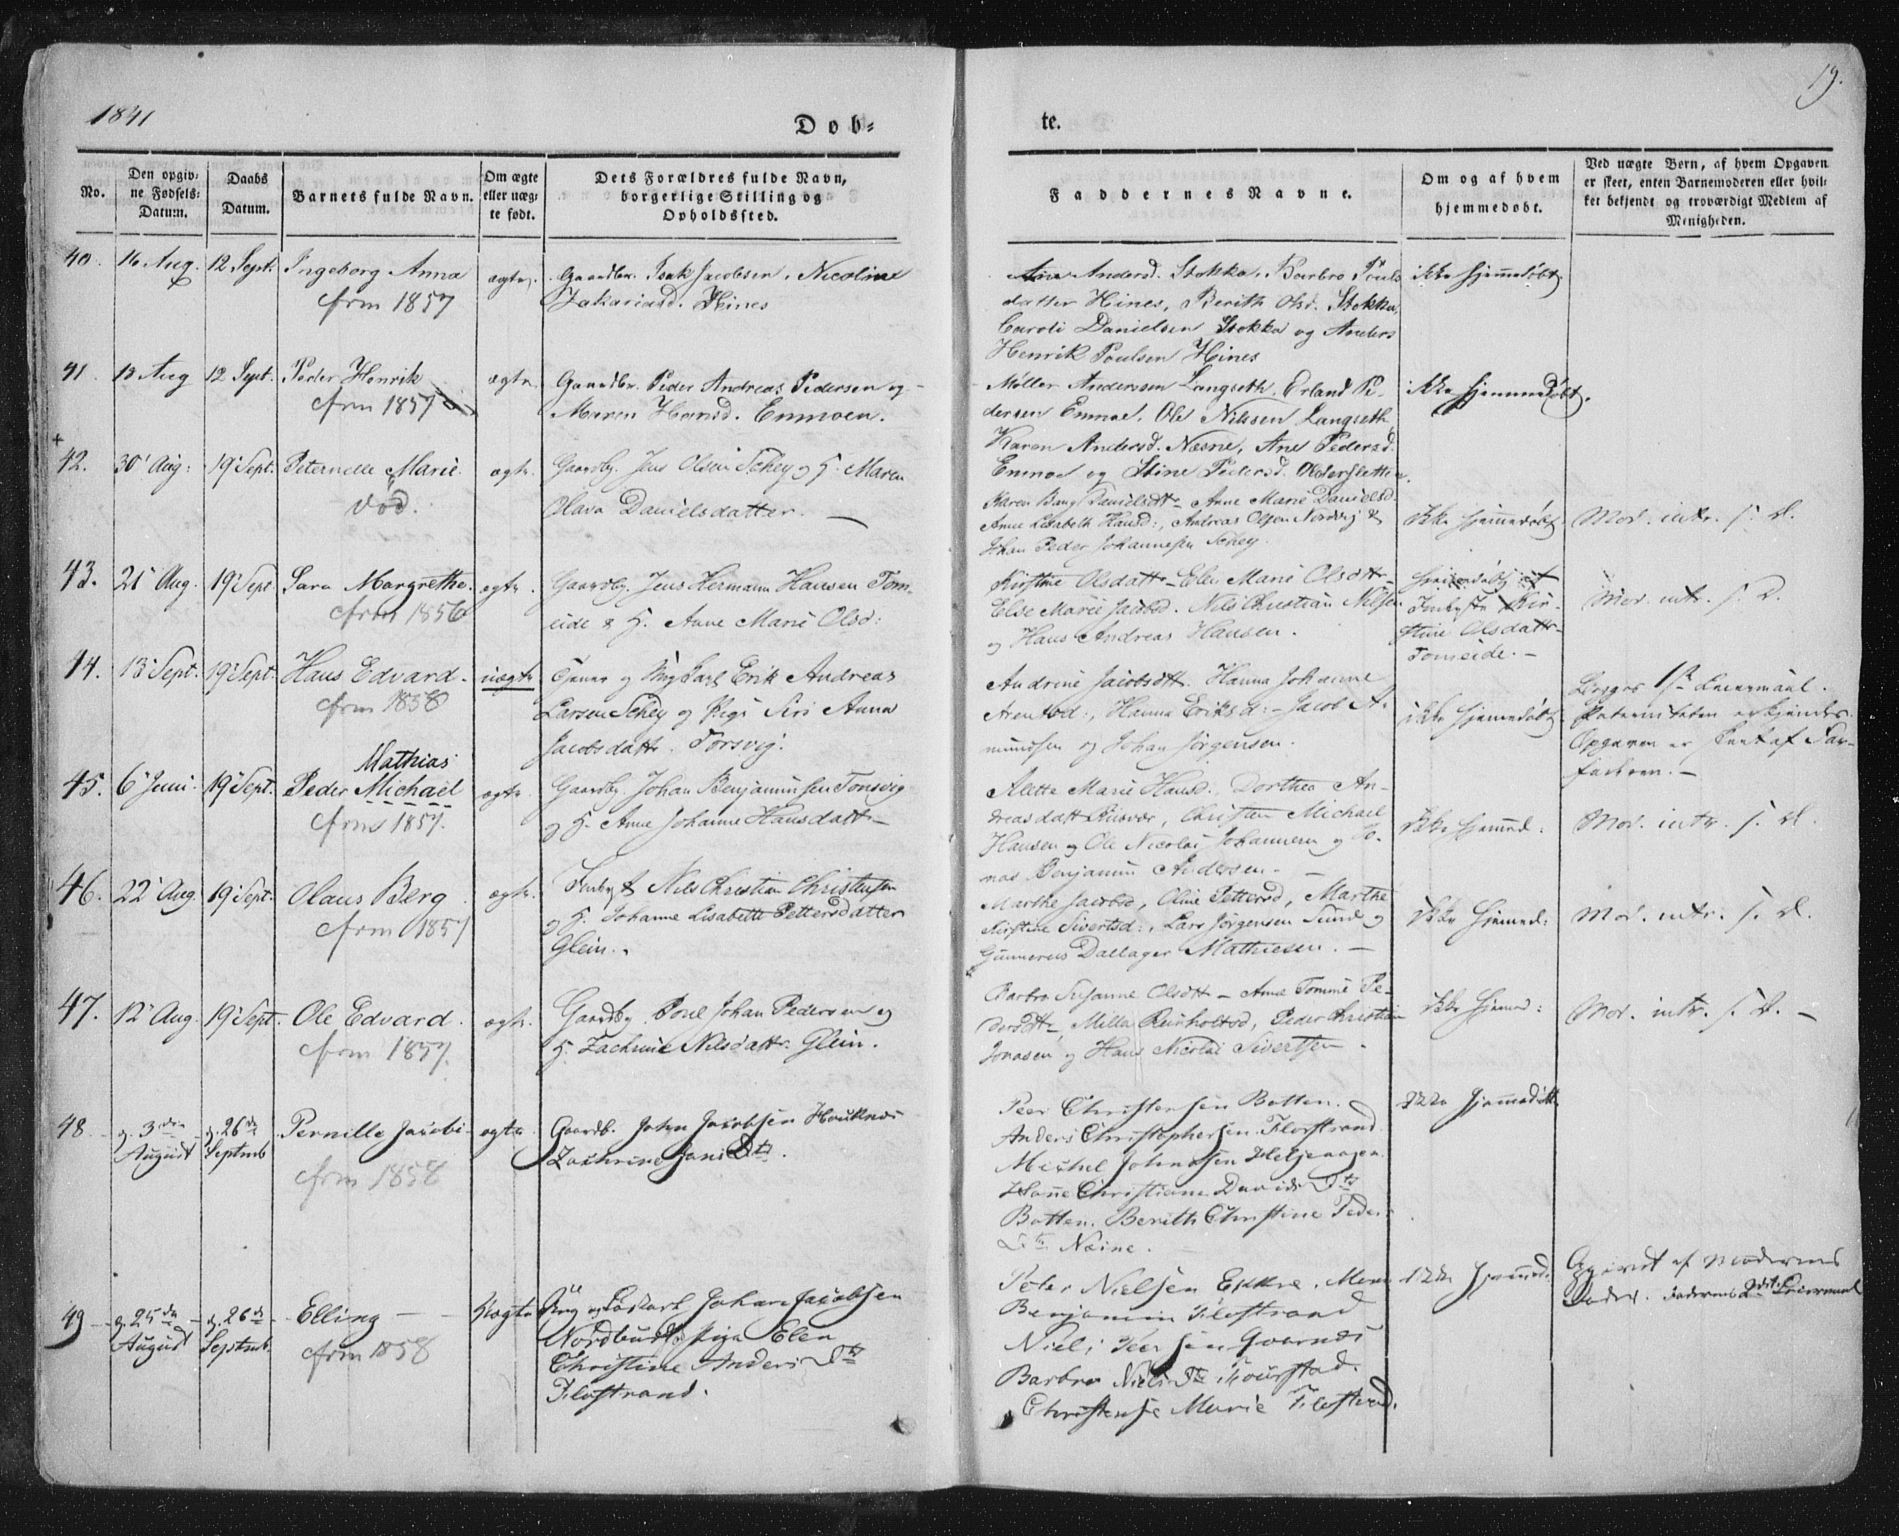 1841
19.
Døb-
te.
No.
Den opgiv-
ne Fødsels-
Datum.
Daabs
Datum.
Barnets fulde Navn.
Om ægte
eller uæg-
te født.
Dets Forældres fulde Navn,
borgerlige Stilling og
Opholdssted.
Faddernes Navne.
Om og af hvem
hjemmedøbt.
Ved uægte Børn, af hvem Opgaven
er skeet, enten Barnemoderen eller hvil-
ket bekjendt og troværdigt Medlem af
Menigheden.
40. 16 Aug. 12 Sept. Ingeborg Anna ægte.
cfrm 1857
Gaardbr. Isak Jacobsen, Nicoline
Zakariasd. Hines
Ane Andersd. Stokka, Barbro Pouls
datter Hines, Berith Olsd. Stokka,
Caroli Danielsen Stokka og Anders
Henrik Poulsen Hines
ikke hjemmedøbt
41. 12 Sept. Peder Henrik ægte
cfrm 1857
Gaardbr. Peder Andreas Pedersen og
Maren Hansd. Emmoen.
Møller Anderssen Langseth, Erland Pe-
dersen Emmoe, Ole Nilssen Langseth
Karen Andersd. Næsne, Ane Pedersd.
Emmoe og Stine Pedersd.
ikke hjemmedøbt.
+
42. 30' Aug: 19' Sept. Peternelle Marie ægte
død.
Gaardby. Jens Olsen Schey og H. Maren
Olava Danielsdatter. —
Karen Bang Danielsdtr, Anne Marie Danielsd
Anne Lisabeth Hansd:, Andreas Olsen Nordvig &
Johan Peder Johannesen Schey.
ikke hjemmedøbt
Mod. intr. s. D.
43. 21' Aug. 19' Sept Sara Margrethe. ægte
cfrm 1856
Gaardby. Jens Hermann Hansen Tom-
eide & H. Anne Marie Olsd:
Kirstine Olsdatt Elen Marie Olsdtr
Else Marie Jacobsd. Nils Christian Nilsen
og Hans Andreas Hansen.
Kir-
stine Olsdattr
Tomeide. —
Mod. intr. s. D.
44. 13' Sept. 19' Sept. Hans Edvard. uægte
cfrm 1858
og Ungkarl Erik Andreas
Larsen Schey og Pige Siri Anna
Jacobsdattr. Forsvig.
Andrine Jacobsdtt. Hanna Johanne
Arentsd:, Hanna Eriksd: Jacob A-
mundsen og Johan Jørgensen.
ikke hjemmedøbt
Begges 1ste Leiermaal.
Paterniteten erkjendes.
Opgaven er skeet af Far-
faderen. —
Mathias
45. 6' Juni: 19' Sept. Peder Michael ægte
cfrm 1857.
Gaardby. Johan Benjaminsen Tonsvig
og H. Anne Johanne Hansdattr
Alette Marie Hansd., Dorthea An-
dreasdatt Christen Michael
Hansen og Ole Nicolai Johannesen og Jo-
nas Benjamin Andersen. —
ikke hjemmed:
Mod. intr. s. D.
46. 22' Aug 19' Sept. Olaus Berg ægte
cfrm 1857
Nils Christian Christensen
og H. Johanne Lisabeth Pettersdatter
Glein.
Marthe Jacobsd, Oline Pettersd, Marthe
Kirstine Sivertsd:, Lars Jørgensen Sund og
Gunnerus Dallager Mathiesen. —
ikke hjemmed:
Mod. intr. s. D.
47. 12' Aug. 19' Sept. Ole Edvard. ægte.
cfrm 1857.
Gaardby. Poul Johan Pedersen og
H. Zachrine Nilsdattr. Glein.
Barbro Susanne Olsdtt — Anne Tomine Pe-
dersdtt Milla Reinholtsd, Peder Christian
Jonasen og Hans Nicolai Sivertsen.
ikke hjemmed:
Mod. intr. s. D. —
48 d. 3die d. 26de Pernille Jacobi- ægte
August Septemb
cfrm 1858
Gaardb. John Jacobsen Houknes
Zachrine Jans Dtr.
Peer Christensen Botten.
Anders Christophersen Flostrand.
Michel Johnsen
Hanne Christiane Davids Dtr
Botten. Berith Christine Peder-
Dtr Næsne.
ikke hjemmedøbt
49 d. 25de d. 26de Elling — Uægte
August Septemb.
cfrm 1858
Johan Jacobsen
Pige Elen
Christine Anders Dtr
Flostrand.
Peter Nielsen
Benjamin Flostrand
Niels Peersen
Barbra Niels Dtr
Christense Marie Flostrand.
ikke hjemmed.
Opgivet af Moderens
Fader. Faderens 2det Leiermaal